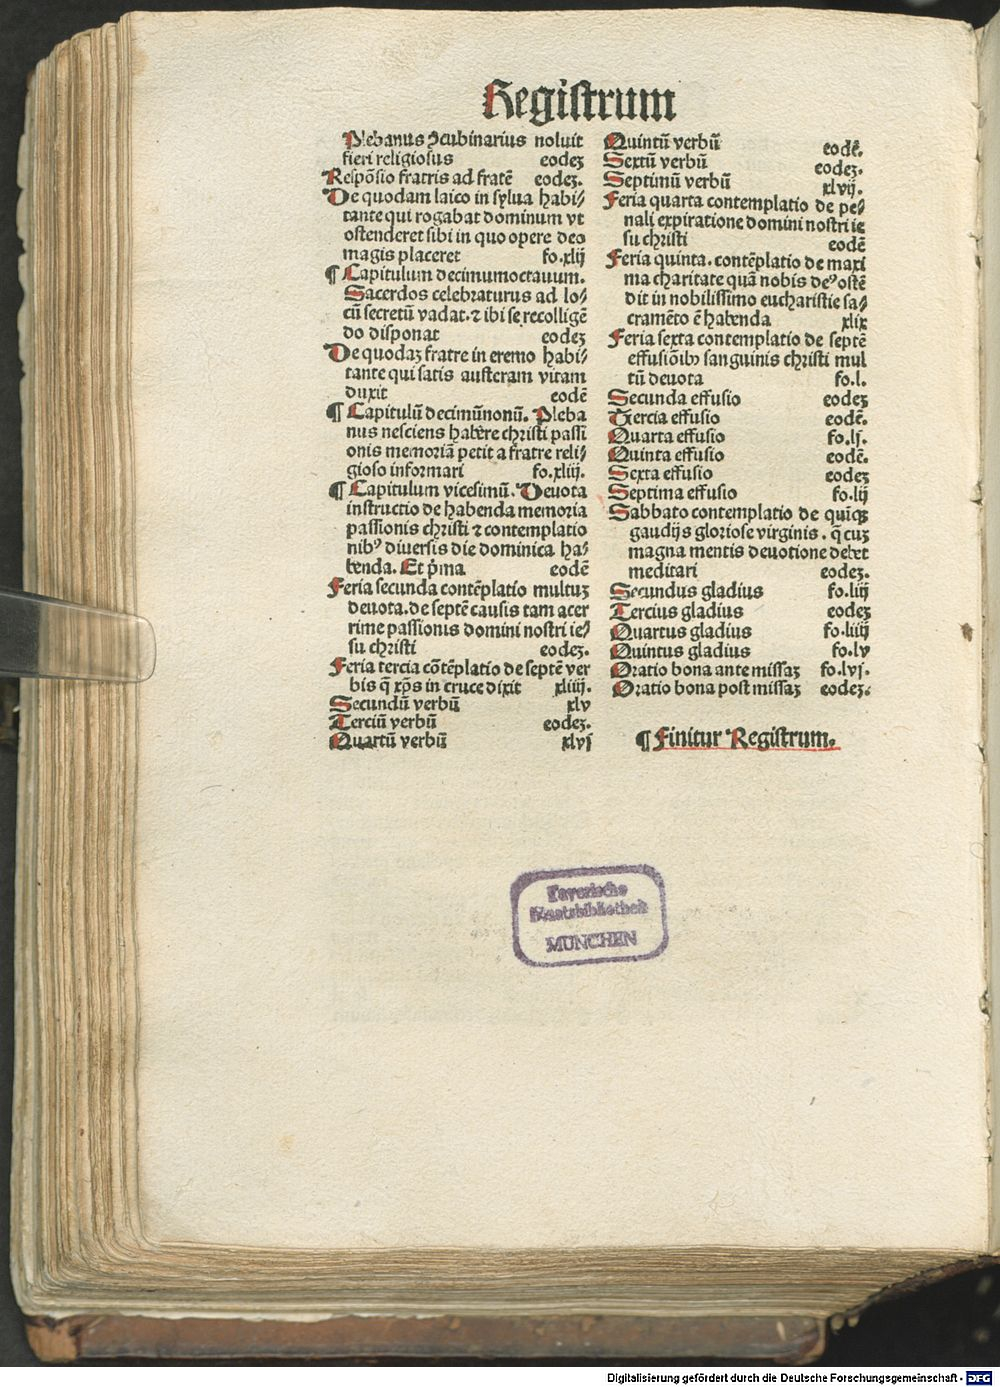 Registrum
Plebanus ꝯcubinarius noluit
fieri religiosus eodeꝫ
Respōsio fratris ad fratē eodeꝫ.
De quodam laico in sylua habi⸗
tante qui rogabat dominum vt
ostenderet sibi in quo opere deo
magis placeret fo.xlij
¶ Capitulum decimumoctauum.
Sacerdos celebraturus ad lo⸗
cū secretū vadat.⁊ ibi se recolligē
do disponat eodeꝫ
De quodaꝫ fratre in eremo habi⸗
tante qui satis austeram vitam
duxit eodē
¶ Capitulū decimūnonū. Pleba
nus nesciens habere christi passi
onis memoriā petit a fratre reli⸗
gioso informari fo.xliij.
¶ Capitulum vicesimū. Deuota
instructio de habenda memoria
passionis christi ⁊ contemplatio
nibꝰ diuersis die dominica ha⸗
benda. Et p̄ma eodē
Feria secunda contēplatio multuꝫ
deuota.de septē causis tam acer
rime passionis domini nostri ie⸗
su christi eodeꝫ.
Feria tercia cōtēplatio de septē ver
bis q̄ xp̄s in cruce dixit xliiij.
Secundū verbū xlv
Terciū verbū eodeꝫ.
Quartū verbū xlvj
Quintū verbū eodē.
Sextū verbū eodeꝫ.
Septimū verbū xlvij.
Feria quarta contemplatio de pe⸗
nali expiratione domini nostri ie
su christi eodē
Feria quinta.contēplatio de maxi
ma charitate quā nobis deꝰ ostē
dit in nobilissimo eucharistie sa⸗
cramēto ē habenda xlix
Feria sexta contemplatio de septē
effusiōibꝰ sanguinis christi mul
tū deuota fo.l.
Secunda effusio eodeꝫ
Tercia effusio eodē.
Quarta effusio fo.lj.
Quinta effusio eodē.
Sexta effusio eodeꝫ
Septima effusio fo.lij
Sabbato contemplatio de quīqꝫ
gaudijs gloriose virginis.q̄ cuꝫ
magna mentis deuotione debet
meditari eodeꝫ.
Secundus gladius fo.liij
Tercius gladius eodeꝫ
Quartus gladius fo.liiij
Quintus gladius fo.lv
Oratio bona ante missaꝫ fo.lvj.
Oratio bona post missaꝫ eodeꝫ.
¶ Finitur Registrum.
Bayerische
Staatsbibliothek
MÜNCHEN
Digitalisierung gefördert durch die Deutsche Forschungsgemeinschaft - DFG